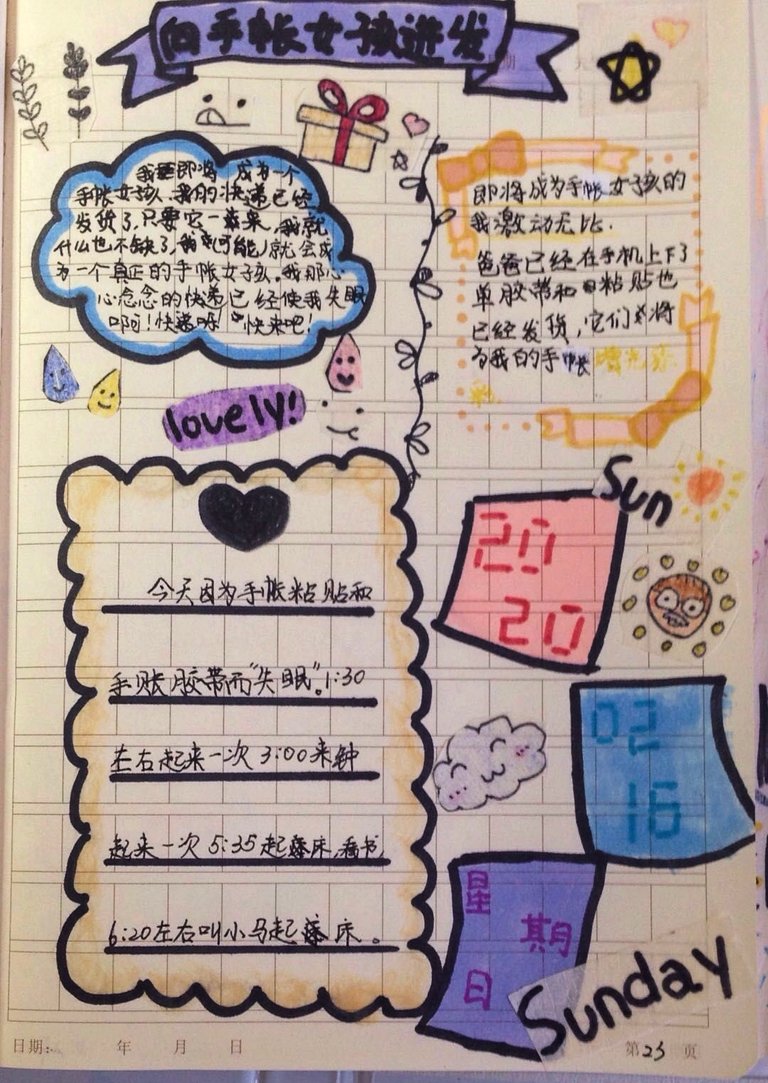 向手帐女孩进发
期
我即将成为一个
手帐女孩,我的快递已经
发货了,只要它一来,我就
什么也不缺了,我(可能)就会成
为一个真正的手帐女孩。我那心
心念念的快递已经使我失眠
啊!快递呀 快来吧!
即将成为手帐女孩的
我激动无比.
爸爸已经在手机上下了
单胶带和粘贴也
已经发货,它们将
为我的手帐增光添
彩.
lovely!
今天因为手账粘贴和
手账胶带而“失眠”。1:30
左右起来一次 3:00来钟
起来一次 5:35起床,看书,
6:20左右叫小马起床。
Sun
20
20
02
16
星
期
日
Sunday
日期: 年 月 日
第23页